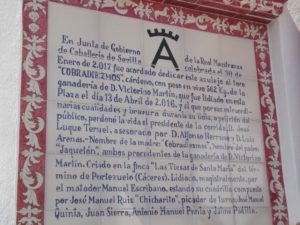 En Junta de Gobierno de la Real Maestranza
de Caballería de Sevilla celebrada el 30 de
Enero de 2.017 fue acordado dedicar este azulejo al toro
"COBRADIEZMOS", cárdeno, con peso en vivo 562 Kg. de la
ganadería de D. Victorino Martín, que fue lidiado en esta
Plaza el día 13 de Abril de 2.016. y al que por sus extraordi-
narias cualidades y bravura durante su lidia, a petición del
público, perdonó la vida el presidente de la corrida D. José
Luque Teruel, asesorado por D.
Arenas.-Nombre de la madre: "Cobradiezmos", Nombre del padre:
ambos procedentes de la ganadería de D. Victorino
Martín. Criado en la finca "Las Tiesas de Santa María" del tér-
mino de Portezuelo (Cáceres). Lidiado, magistralmente, por
el matador Manuel Escribano, estando su cuadrilla compuesta
por José Manuel Ruiz "Chicharito", picador de turno, José Manuel
Quinta, Juan Sierra, Antonio Manuel Punta y Jaime Padilla.